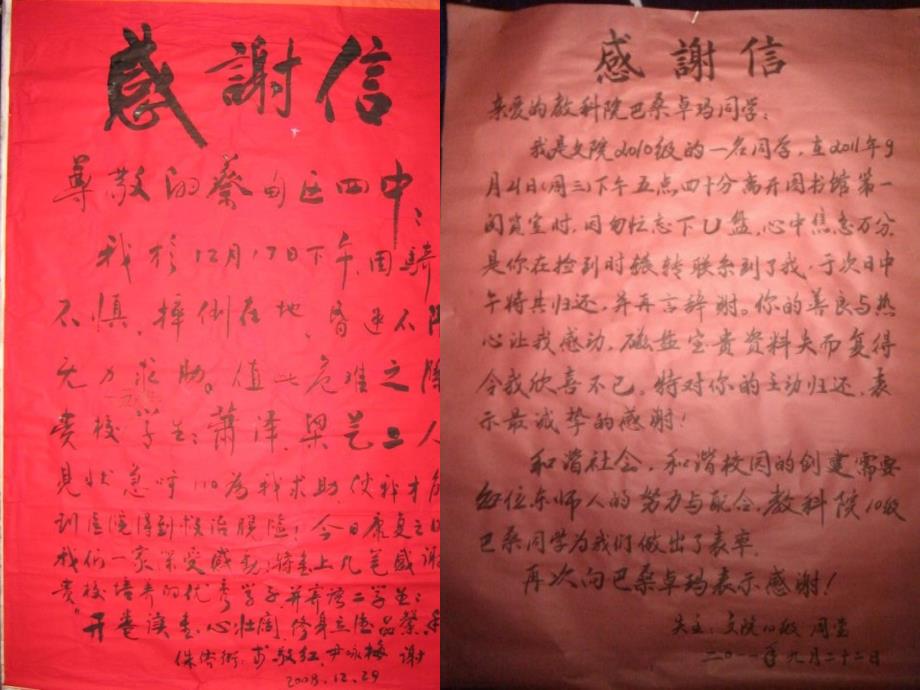 感謝信
尊敬的蔡甸区四中：
我于12月17日下午,因骑
不慎,摔倒在地,昏迷不
无力求助。值此危难之际
贵校学生：萧泽、梁艺二人
见状急呼110为我求助,使我才
医院得到救治脱险！今日康复之
我们一家深受感动；特书上几笔感谢
贵校培养的优秀学子并寄语二学生：
"开卷读书心壮阔 修身立德品
敬红 尹咏梅 谢
2008.12.29
感謝信
亲爱的教科院巴桑卓玛同学：
我是文院2010级的一名同学,在2011年9
月21日(周三)下午五点四十分离开图书馆第一
阅览室时,因匆忙忘下U盘,心中焦急万分,
是你在捡到时辗转联系到了我,于次日中
午将其归还,并再言辞谢。你的善良与热
心让我感动,磁盘宝贵资料失而复得
令我欣喜不已。特对你的主动归还,表
示最诚挚的感谢！
和谐社会,和谐校园的创建需要
每位东师人的努力与配合,教科院10级
巴桑同学为我们做出了表率.
再次向巴桑卓玛表示感谢！
失主：文院10级 周莹
二〇一一年九月二十二日